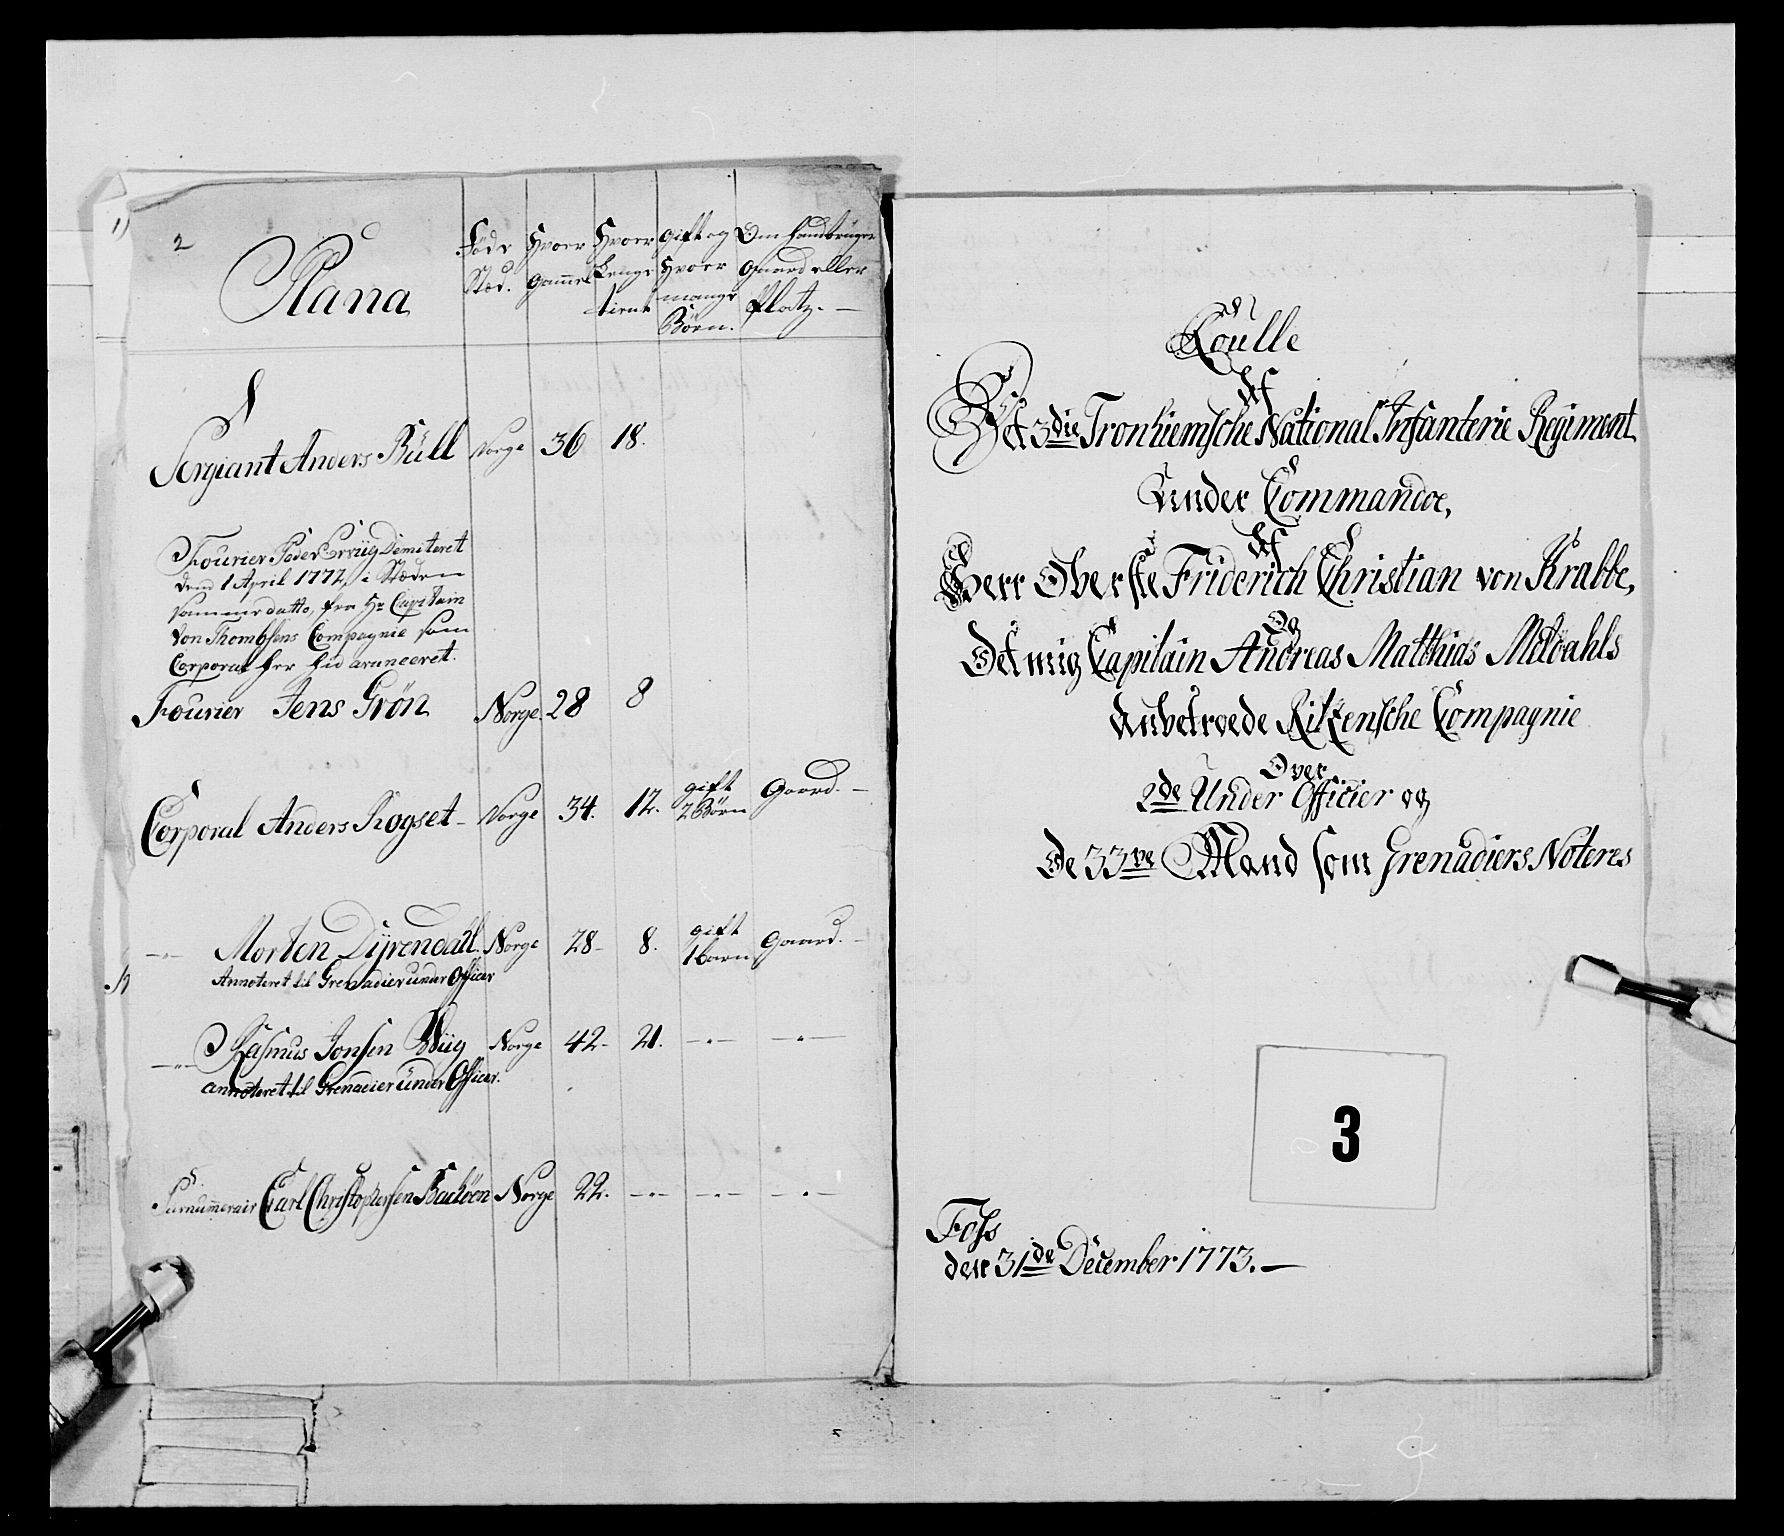 1)
2
Nana
Føde Sted.
Hvor Gammel
Hvor Lenge tient
Gift og Hvor mange Børn.
Om hand bruger Gaard eller Platz. —
Sergiant Anders Büll Norge 36 18.
Fourier Peder Demiteret
den 1 April 1772, i Stæden
samme datto, fra Hr Capitain
von Thombsens Compagnie som
Corporal her hid avanceret.
Fourier Jens Grön Norge. 28 8
Corporal Anders Rogset - Norge 34. 12. gift 2 Börn Gaard. —
—"— Morten Dÿrendahl. Norge 28- 8. gift 1 barn Gaard. —
Annoteret til Grenadier under Officer
—"— Rasmus Jonsen Wüg Norge 42- 21. —"— —"—
annoteret til Grenadier ünder Officer.
Surnumerair Carl Christophersen Norge 22. —"— —"— —"—
Roulle
Af
Det 3die Tronhiemsche National Infanterie Regiment
Under Commandoe,
Af
Herr Oberste Friderich Christian von Krabbe,
Og
Det mig Capitain Andreas Matthias Meldahls
Anbetroede Ritzensche Compagnie
Over
2de Under Officier og
De 33ve Mand som Grenadiers Noteres
3
Foss
den 31de December 1773. —